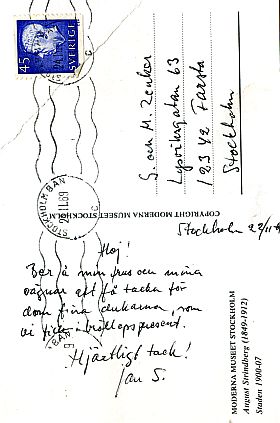 45
SVERIGE
G. och M. Zenker
Lysviksgatan 63
123 42 Farsta
Stockholm
STOCKHOLM BAN
C
COPYRIGHT MODERNA MUSEET STOCKHOLM
Stockholm 22/11-
Hej!
Ber å min frus och mina
vägnar att få tacka för
dom fina dukarna, som
vi fick i bröllopspresent.
Hjärtligt tack!
Jan S.
MODERNA MUSEET STOCKHOLM
August Strindberg (1849-1912)
Staden 1900-07